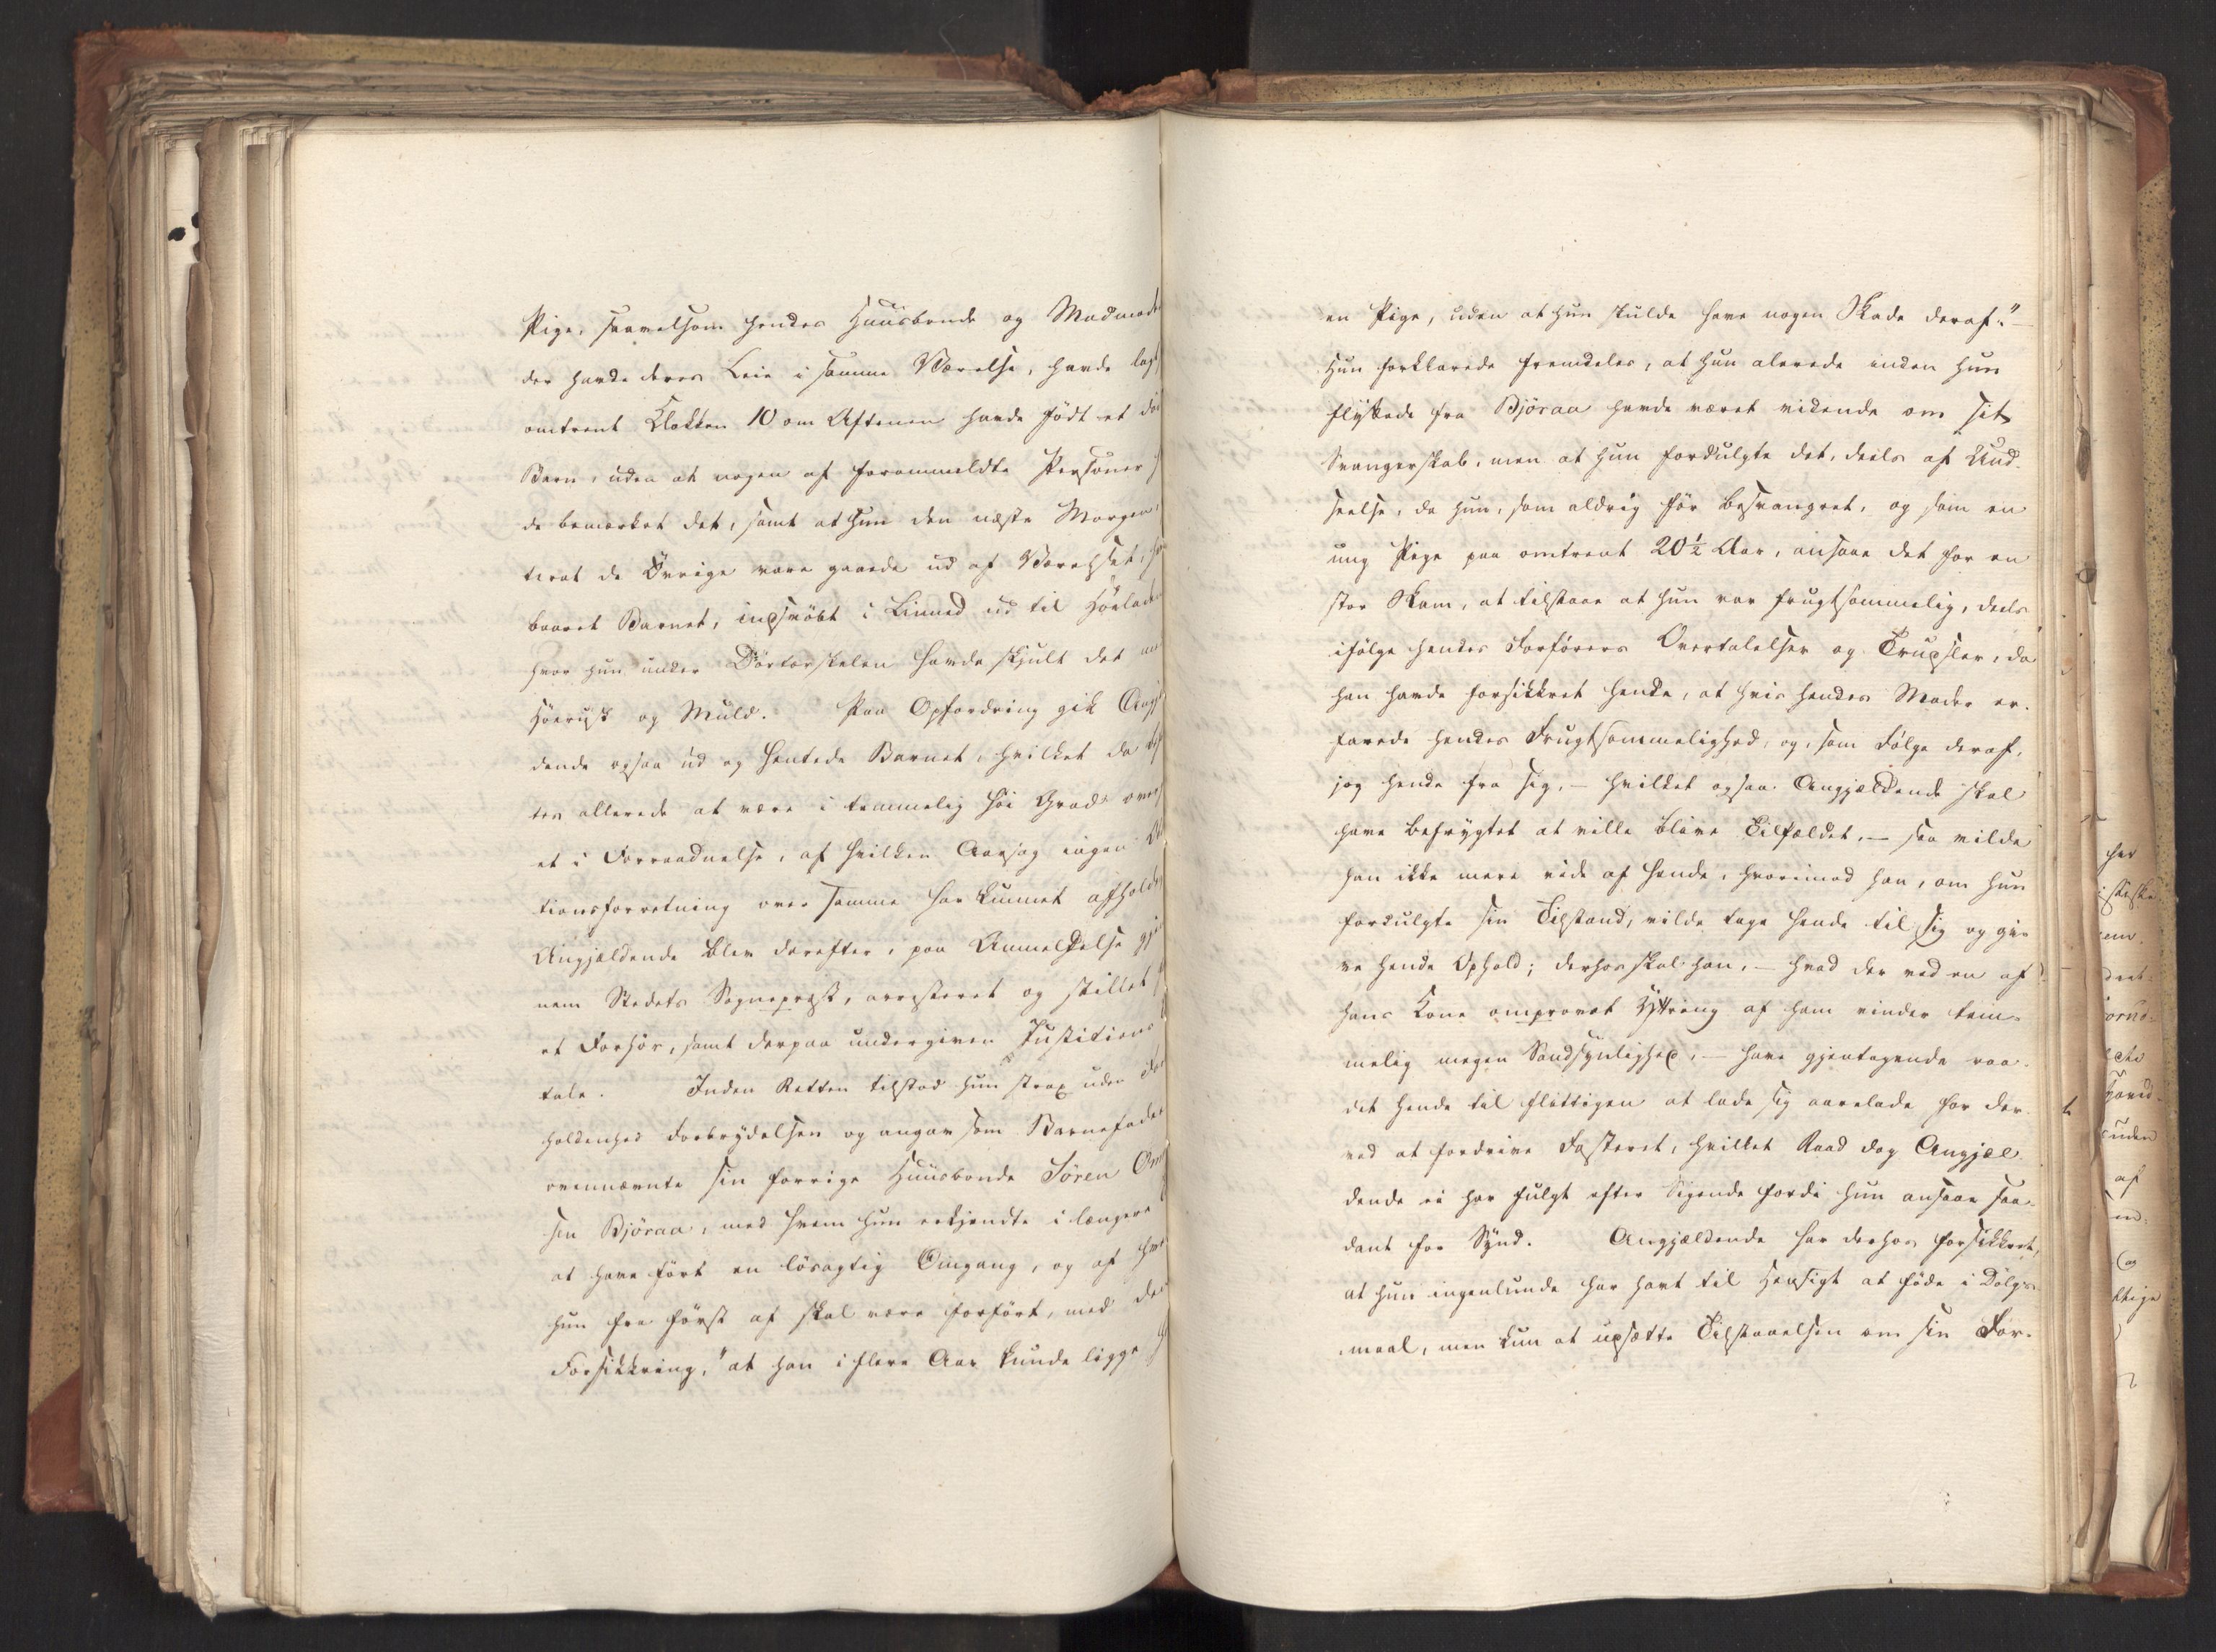 Pige, saavelsom hendes Huusbonde og Madmoder
der havde deres Leie i samme Værelse, havde lagt
omtrent Klokken 10 om Aftenen havde født et
Barn, uden at nogen af forommeldte Personer
de bemærket det, samt at hun den næste Morgen,
terat de Øvrige vare gaaede ud af Værelset,
baaret Barnet, indsvøbt i Linned ud til Høeladen
hvor hun under Dørtærskelen havde skjult det
Høerusk og Muld. Paa Opfordring gik Angjæl
dende ogsaa ud og hentede Barnet, hvilket da
tes allerede at være i temmelig høi Grad over
et i Forraadnelse, af hvilken Aarsag ingen
tionsforretning over samme har kunnet afholdes
Angjældende blev derefter, paa Anmeldelse gjen
nem Stedets Sognepræst, arresteret og stillet
et Forhør, samt derpaa undergiven Justitiens
tale. Inden Retten tilstod hun strax uden For
holdenhed Forbrydelsen og angav som Barnefader
ovennævnte sin forrige Huusbonde Søren
sen Björaa, med hvem hun erkjendte i længere
at have ført en løsagtig Omgang, og af
hun fra først af skal være forført, med den
Forsikkring, "at han i flere Aar kunde ligge
en Pige, uden at hun skulde have nogen Skade deraf."—
Hun forklarede fremdeles, at hun alerede inden hun
flyttede fra Björaa havde været vidende om sit
Svangerskab, men at hun fordulgte det, deels af Und-
seelse, da hun, som aldrig før besvangret, og som en
ung Pige paa omtrent 20½ Aar, ansaae det for en
stor Skam, at tilstaae at hun var frugtsommelig, deels
ifølge hendes Forførers Overtalelser og Trudsler, da
han havde forsikkret hende, at hvis hendes Moder er-
farede hendes Frugtsommelighed, og, som Følge deraf,
jog hende fra sig, — hvilket ogsaa Angjældende skal
have befrygtet at ville blive Tilfældet, — saa vilde
han ikke mere vide af hende, hvorimod han, om hun
fordulgte sin Tilstand, vilde tage hende til sig og gi-
ve hende Ophold; derhos skal han, — hvad der ved en af
hans Kone omprovet Yttring af ham vinder tem-
melig megen Sandsynlighed, — have gjentagende raa-
det hende til flittigen at lade sig aarelade for der-
ved at fordrive Fosteret, hvilket Raad dog Angjæl
dende ei har fulgt efter Sigende fordi hun ansaae saa-
dant for Synd. Angjældende har derhos forsikkret,
at hun ingenlunde har havt til Hensigt at føde i Dølgs-
maal, men kun at udsætte Tilstaaelsen om sin For-